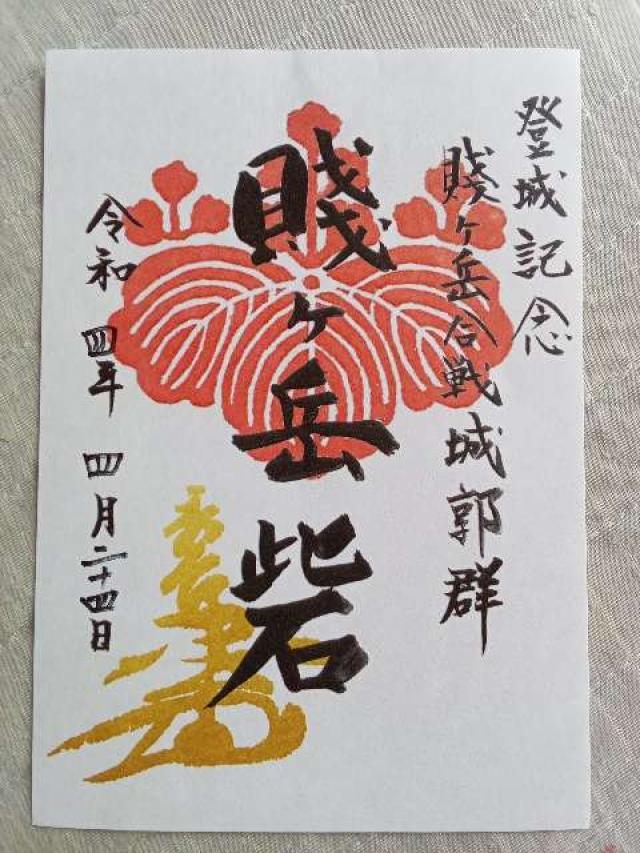 登城記念
賤ヶ岳合戦城郭群
賤ヶ岳砦
令和四年四月二十四日